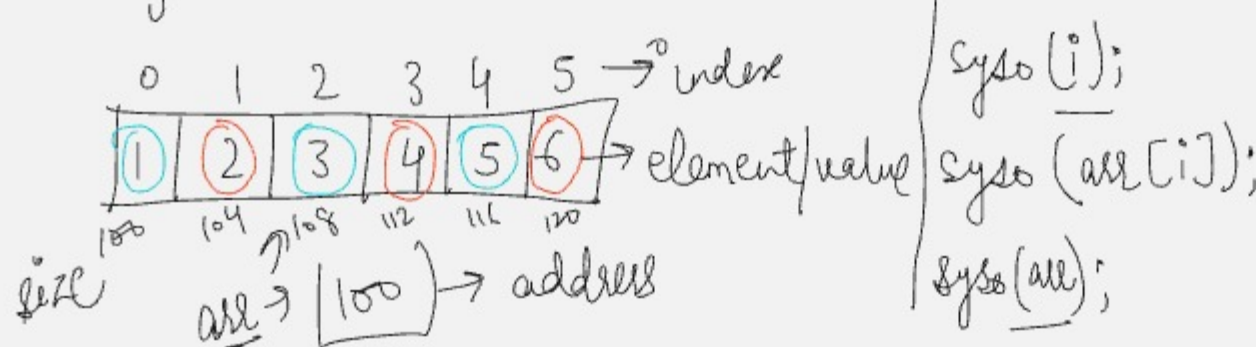 0 1 2 3 4 5 → index
1 2 3 4 5 6 → element/value
100 104 108 112 116 120
size
arr → 100 → address
syso (i);
syso (arr [i]);
syso (arr);